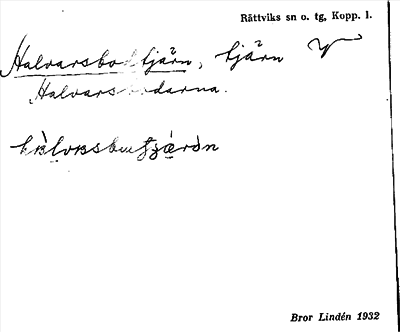 Rättviks sn o. tg, Kopp. l.
Halvarsbodtjärn, tjärn
Halvarsbodarna.
Bror Lindén 1932